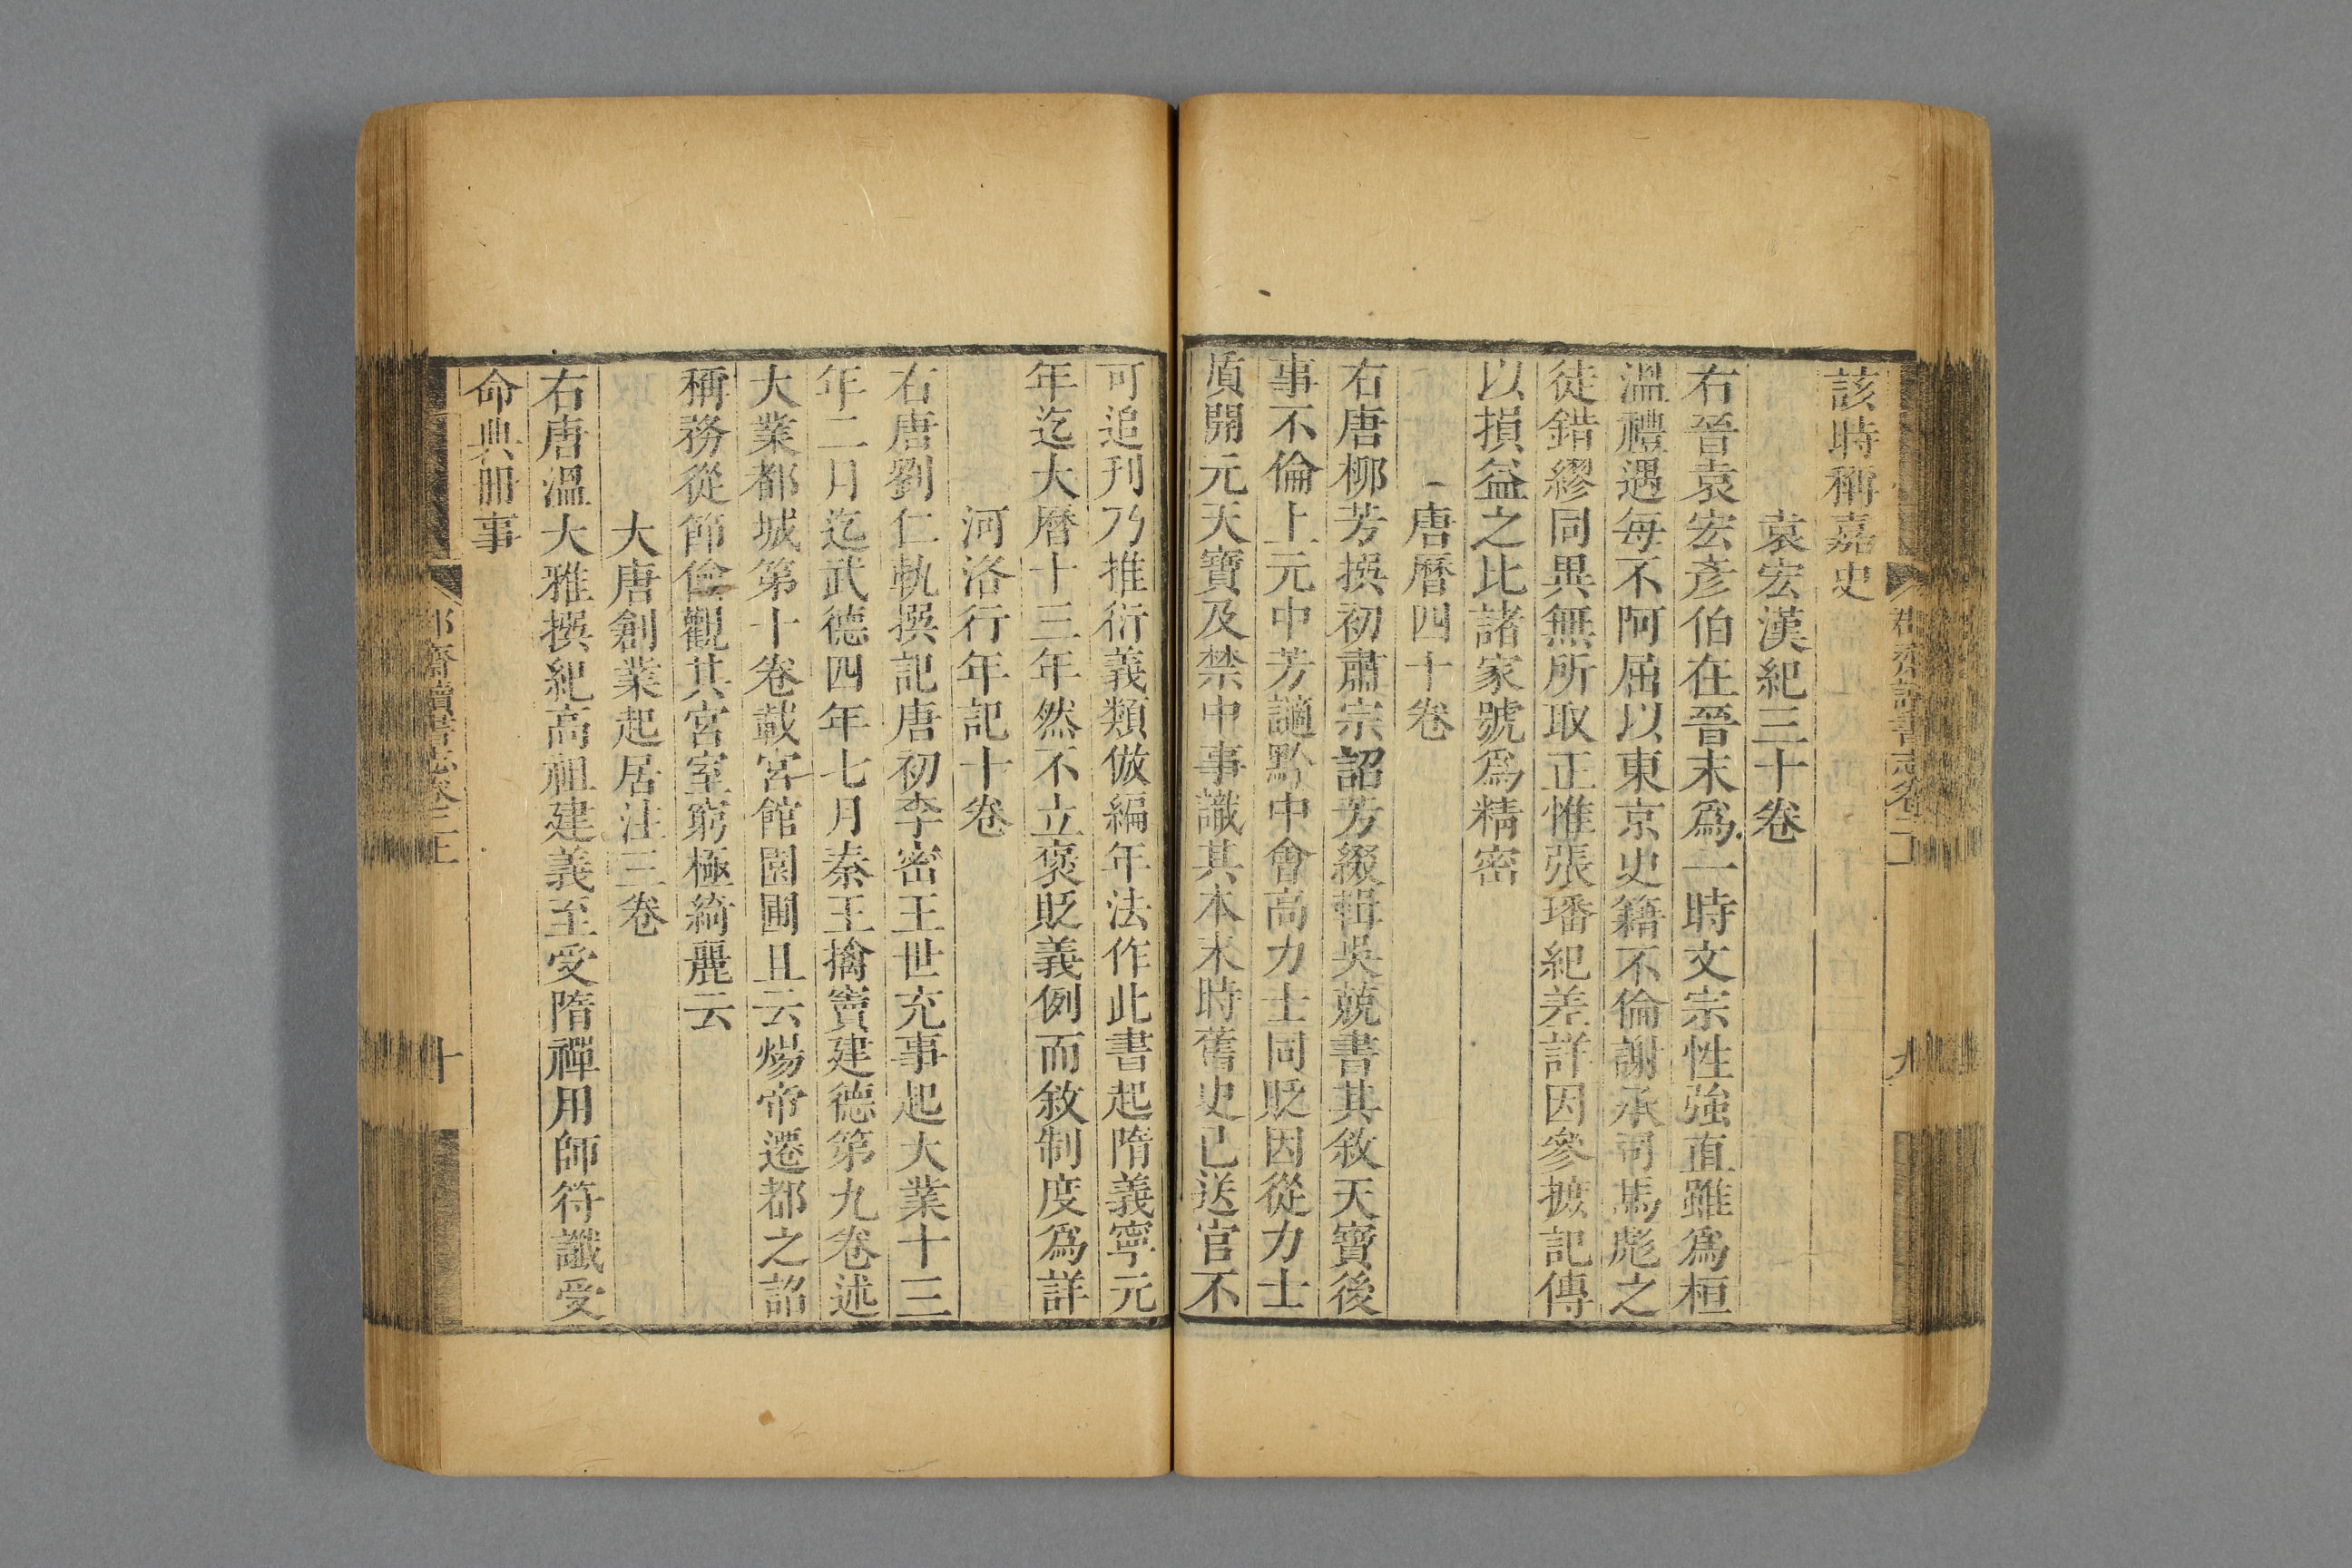 該時稱嘉史
袁宏漢紀三十卷
右晉袁宏彥伯在晉末爲一時文宗性強直雖爲桓
溫禮遇每不阿屈以東京史籍不倫謝承司馬彪之
徒錯繆同異無所取正惟張璠紀差詳因參摭記傳
以損益之比諸家號爲精密
唐曆四十卷
右唐柳芳撰初肅宗詔芳綴輯吳兢書其敘天寶後
事不倫上元中芳謫黔中會高力士同貶因從力士
質開元天寶及禁中事識其本末時舊史已送官不
九
可追刊乃推衍義類倣編年法作此書起隋義寧元
年迄大曆十三年然不立褒貶義例而敘制度爲詳
河洛行年記十卷
右唐劉仁軌撰記唐初李密王世充事起大業十三
年二月迄武德四年七月秦王擒竇建德第九卷述
大業都城第十卷載宮館園囿且云煬帝遷都之詔
稱務從節儉觀其宮室窮極綺麗云
大唐創業起居注三卷
右唐溫大雅撰紀高祖建義至受隋禪用師符讖受
命典冊事
郡齋讀書志卷二上
十